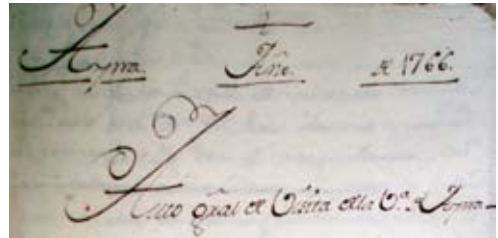 Ayna. Año. de 1766.
Auto gral de Visita de la Vª. de Ayna